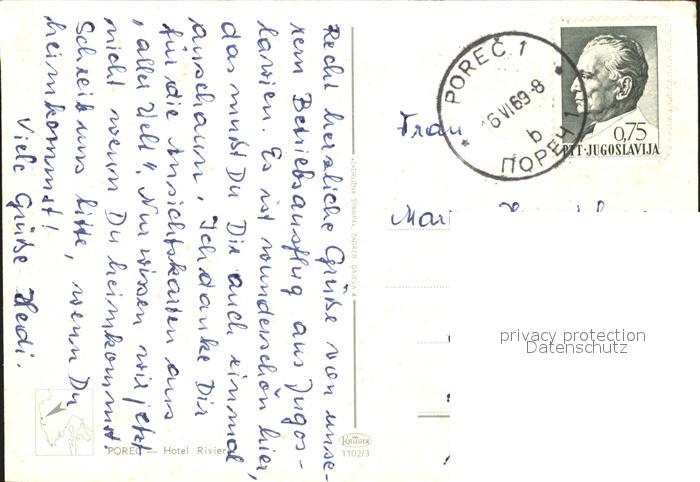 Recht herzliche Grüße von unse-
rem Betriebsausflug aus Jugos-
lawien. Es ist wunderschön hier,
das mußt Du Dir auch einmal
anschauen. Ich danke Dir
für die Ansichtskarten aus
„aller Welt". Nur wissen wir jetzt
nicht wenn Du heimkommst.
Schreib uns bitte, wenn Du
heimkommst!
Viele Grüße Hedi.
POREČ 1
16 VI 69-8
b
ПОРЕЧ 1
0,75
PTT-JUGOSLAVIJA
Frau
ZAGRUŽNA ŠTAMPA, ZAGREB, GAJEVA 4
privacy protection
Datenschutz
POREČ — Hotel Riviera
1102/3